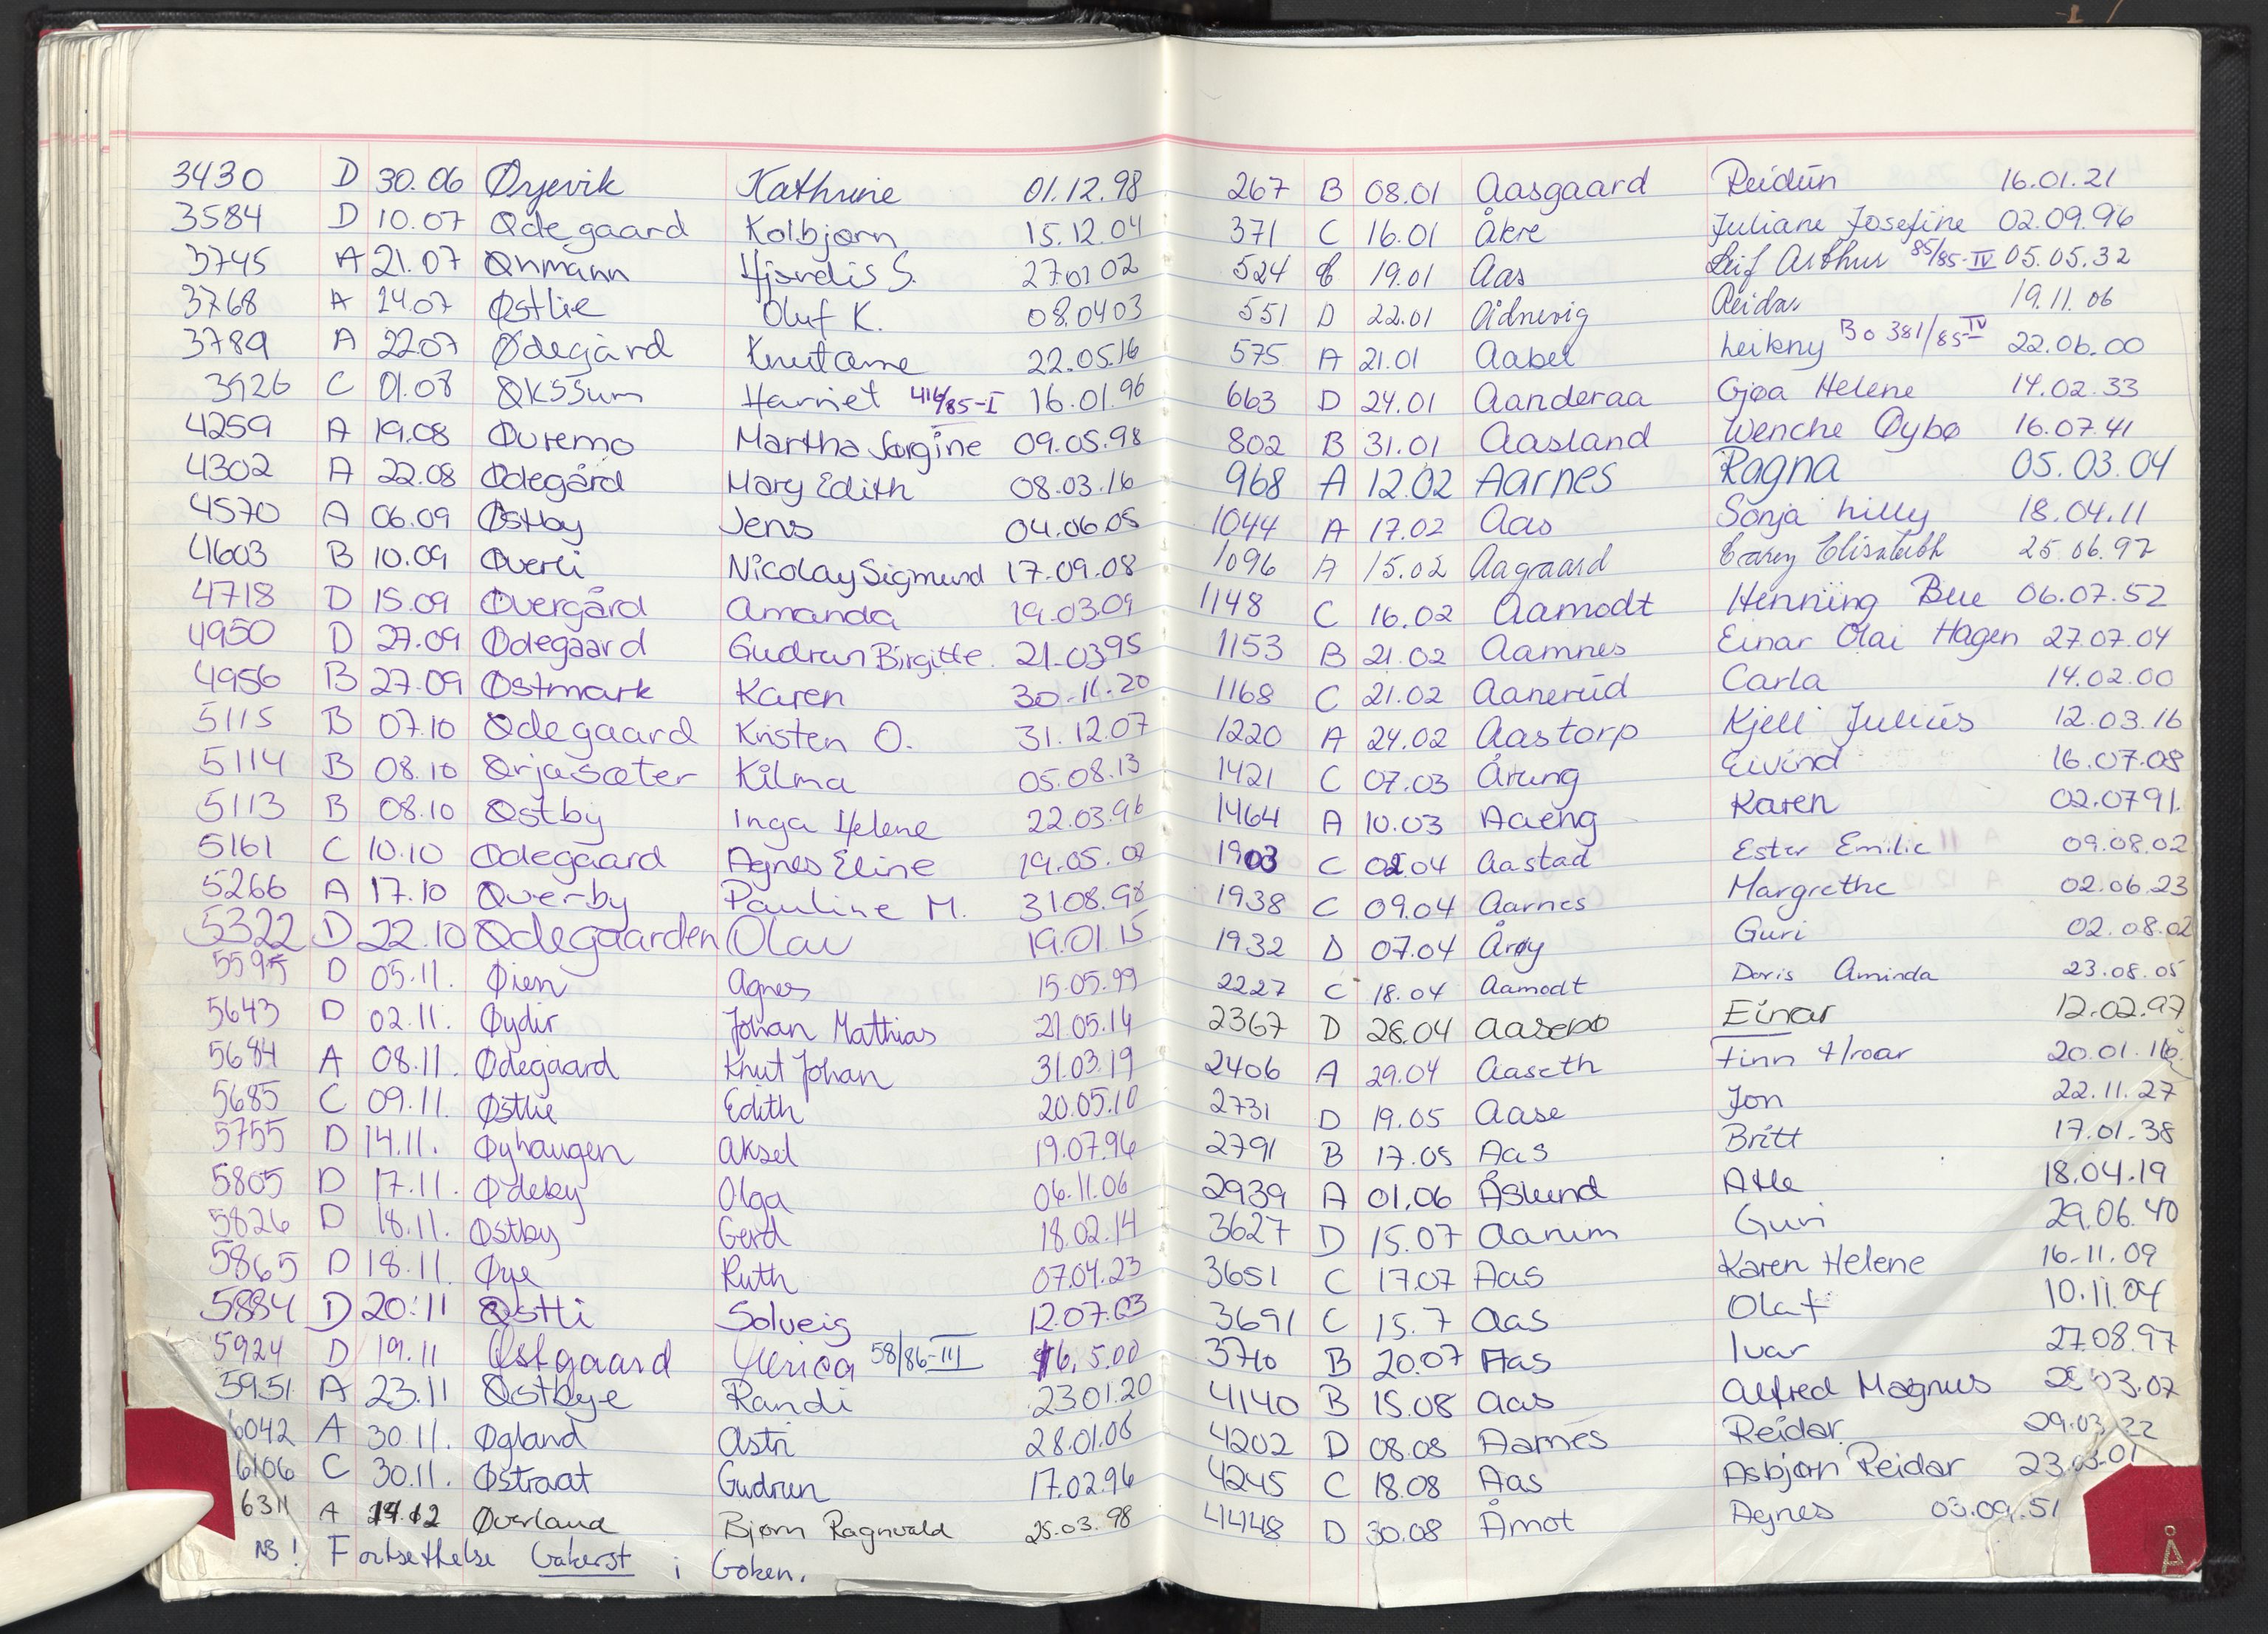 3430 D 30.06 Øyevik Kathrine 01.12.98
3584 D 10.07 Ødegaard Kolbjørn 15.12.04
3745 A 21.07 Øhmann Hjørdis S. 27.01 02
3768 A 24.07 Østlie Oluf K. 08.04 03
3789 A 22.07 Ødegård Knut Arne 22.05.16
3926 C 01.08 Økssum Harriet 416/85-I 16.01.96
4259 A 19.08 Øvremo Martha Jørgine 09.05.98
4302 A 22.08 Ødegård Mary Edith 08.03.16
4570 A 06.09 Østby Jens 04.06.05
4603 B 10.09 Øverli Nicolay Sigmund 17.09.08
4718 D 15.09 Øvergård Amanda 19.03.09
4950 D 27.09 Ødegaard Gudrun Birgitte. 21.03 95
4956 B 27.09 Østmark Karen 30.11.20
5115 B 07.10 Ødegaard Kristen O. 31.12.07
5114 B 08.10 Ørjasæter Kilma 05.08.13
5113 B 08.10 Østby Inga Helene 22.03.96
5161 C 10.10 Ødegaard Agnes Eline 19.05.02
5266 A 17.10 Øverby Pauline M. 31.08.98
5322 D 22.10 Ødegaarden Olav 19.01.15
5595 D 05.11. Øien Agnes 15.05.99
5643 D 02.11. Øydir Johan Mathias 21.05.14
5684 A 08.11. Ødegaard Knut Johan 31.03.19
5685 C 09.11. Østlie Edith 20.05.10
5755 D 14.11. Øyhaugen Aksel 19.07.96
5805 D 17.11. Ødeby Olga 06.11.06
5826 D 18.11. Østby Gerd 18.02.14
5865 D 18.11. Øye Ruth 07.04.23
5884 D 20.11 Østli Solveig 12.07.03
5924 D 19.11 Østgaard 58/86-III 16.5.00
5951 A 23.11 Østbye Randi 23 01.20
6042 A 30.11. Øgland Astri 28.01.06
6106 C 30.11. Østraat Gudrun 17.02.96
6311 A 12 Øverland Bjørn Ragnvald 25.03.98
NB! Fortsettelse bakerst i boken.
267 B 08.01 Aasgaard Reidun 16.01.21
371 C 16.01 Åkre Juliane Josefine 02.09.96
524 C 19.01 Aas Leif Arthur 85/85-IV 05.05.32
551 D 22.01 Ådnevig Reidar 19.11.06
575 A 21.01 Aabel Leikny Bo 381/85-IV 22.06.00
663 D 24.01 Aanderaa Gjøa Helene 14.02.33
802 B 31.01 Aasland Wenche Øybø 16.07.41
968 A 12.02 Aarnes Ragna 05.03.04
1044 A 17.02 Aas Sonja Lilly 18.04.11
1096 A 15.02 Aagaard Elisabeth 25.06.97
1148 C 16.02 Aamodt Henning Bue 06.07.52
1153 B 21.02 Aamnes Einar Olai Hagen 27.07.04
1168 C 21.02 Aanerud Carla 14.02.00
1220 A 24.02 Aastorp Kjell Julius 12.03.16
1421 C 07.03 Årung Eivind 16.07.08
1464 A 10.03 Aaeng Karen 02.07 91.
1903 C 02.04 Aastad Ester Emilie 09.08.02
1938 C 09.04 Aarnes Margrethe 02.06.23
1932 D 07.04 Årøy Guri 02.08.02
2227 C 18.04 Aamodt Doris Aminda 23.08.05
2367 D 28.04 Aasebø Einar 12.02.97
2406 A 29.04 Aaseth Finn Hroar 20.01.16
2731 D 19.05 Aase Jon 22.11.27
2791 B 17.05 Aas Britt 17.01.38
2939 A 01.06 Åslund Atle 18.04.19
3627 D 15.07 Aarum Guri 29.06.40
3651 C 17.07 Aas Karen Helene 16.11.09
3691 C 15.7 Aas Olaf 10.11.04
3710 B 20.07 Aas Ivar 27.08.97
4140 B 15.08 Aas Alfred Magnus 03.07
4202 D 08.08 Aarnes Reidar 29.03.22
4245 C 18.08 Aas Asbjørn Reidar 23.03.01
4448 D 30.08 Åmot Agnes 03.09.51
Å